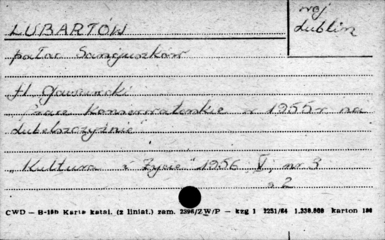 LUBARTÓW
woj
Lublin
pałac Sanguszków
H. Gawarecki
Prace konserwatorskie w 1955 r na
Lubelszczyźnie
"Kultura i Życie" 1956 V, nr 3
s 2
CWD — B-10b Karta katal. (z liniat.) zam. 2206/ZW/P — kzg 1 2251/64 1.230.000 karton 100